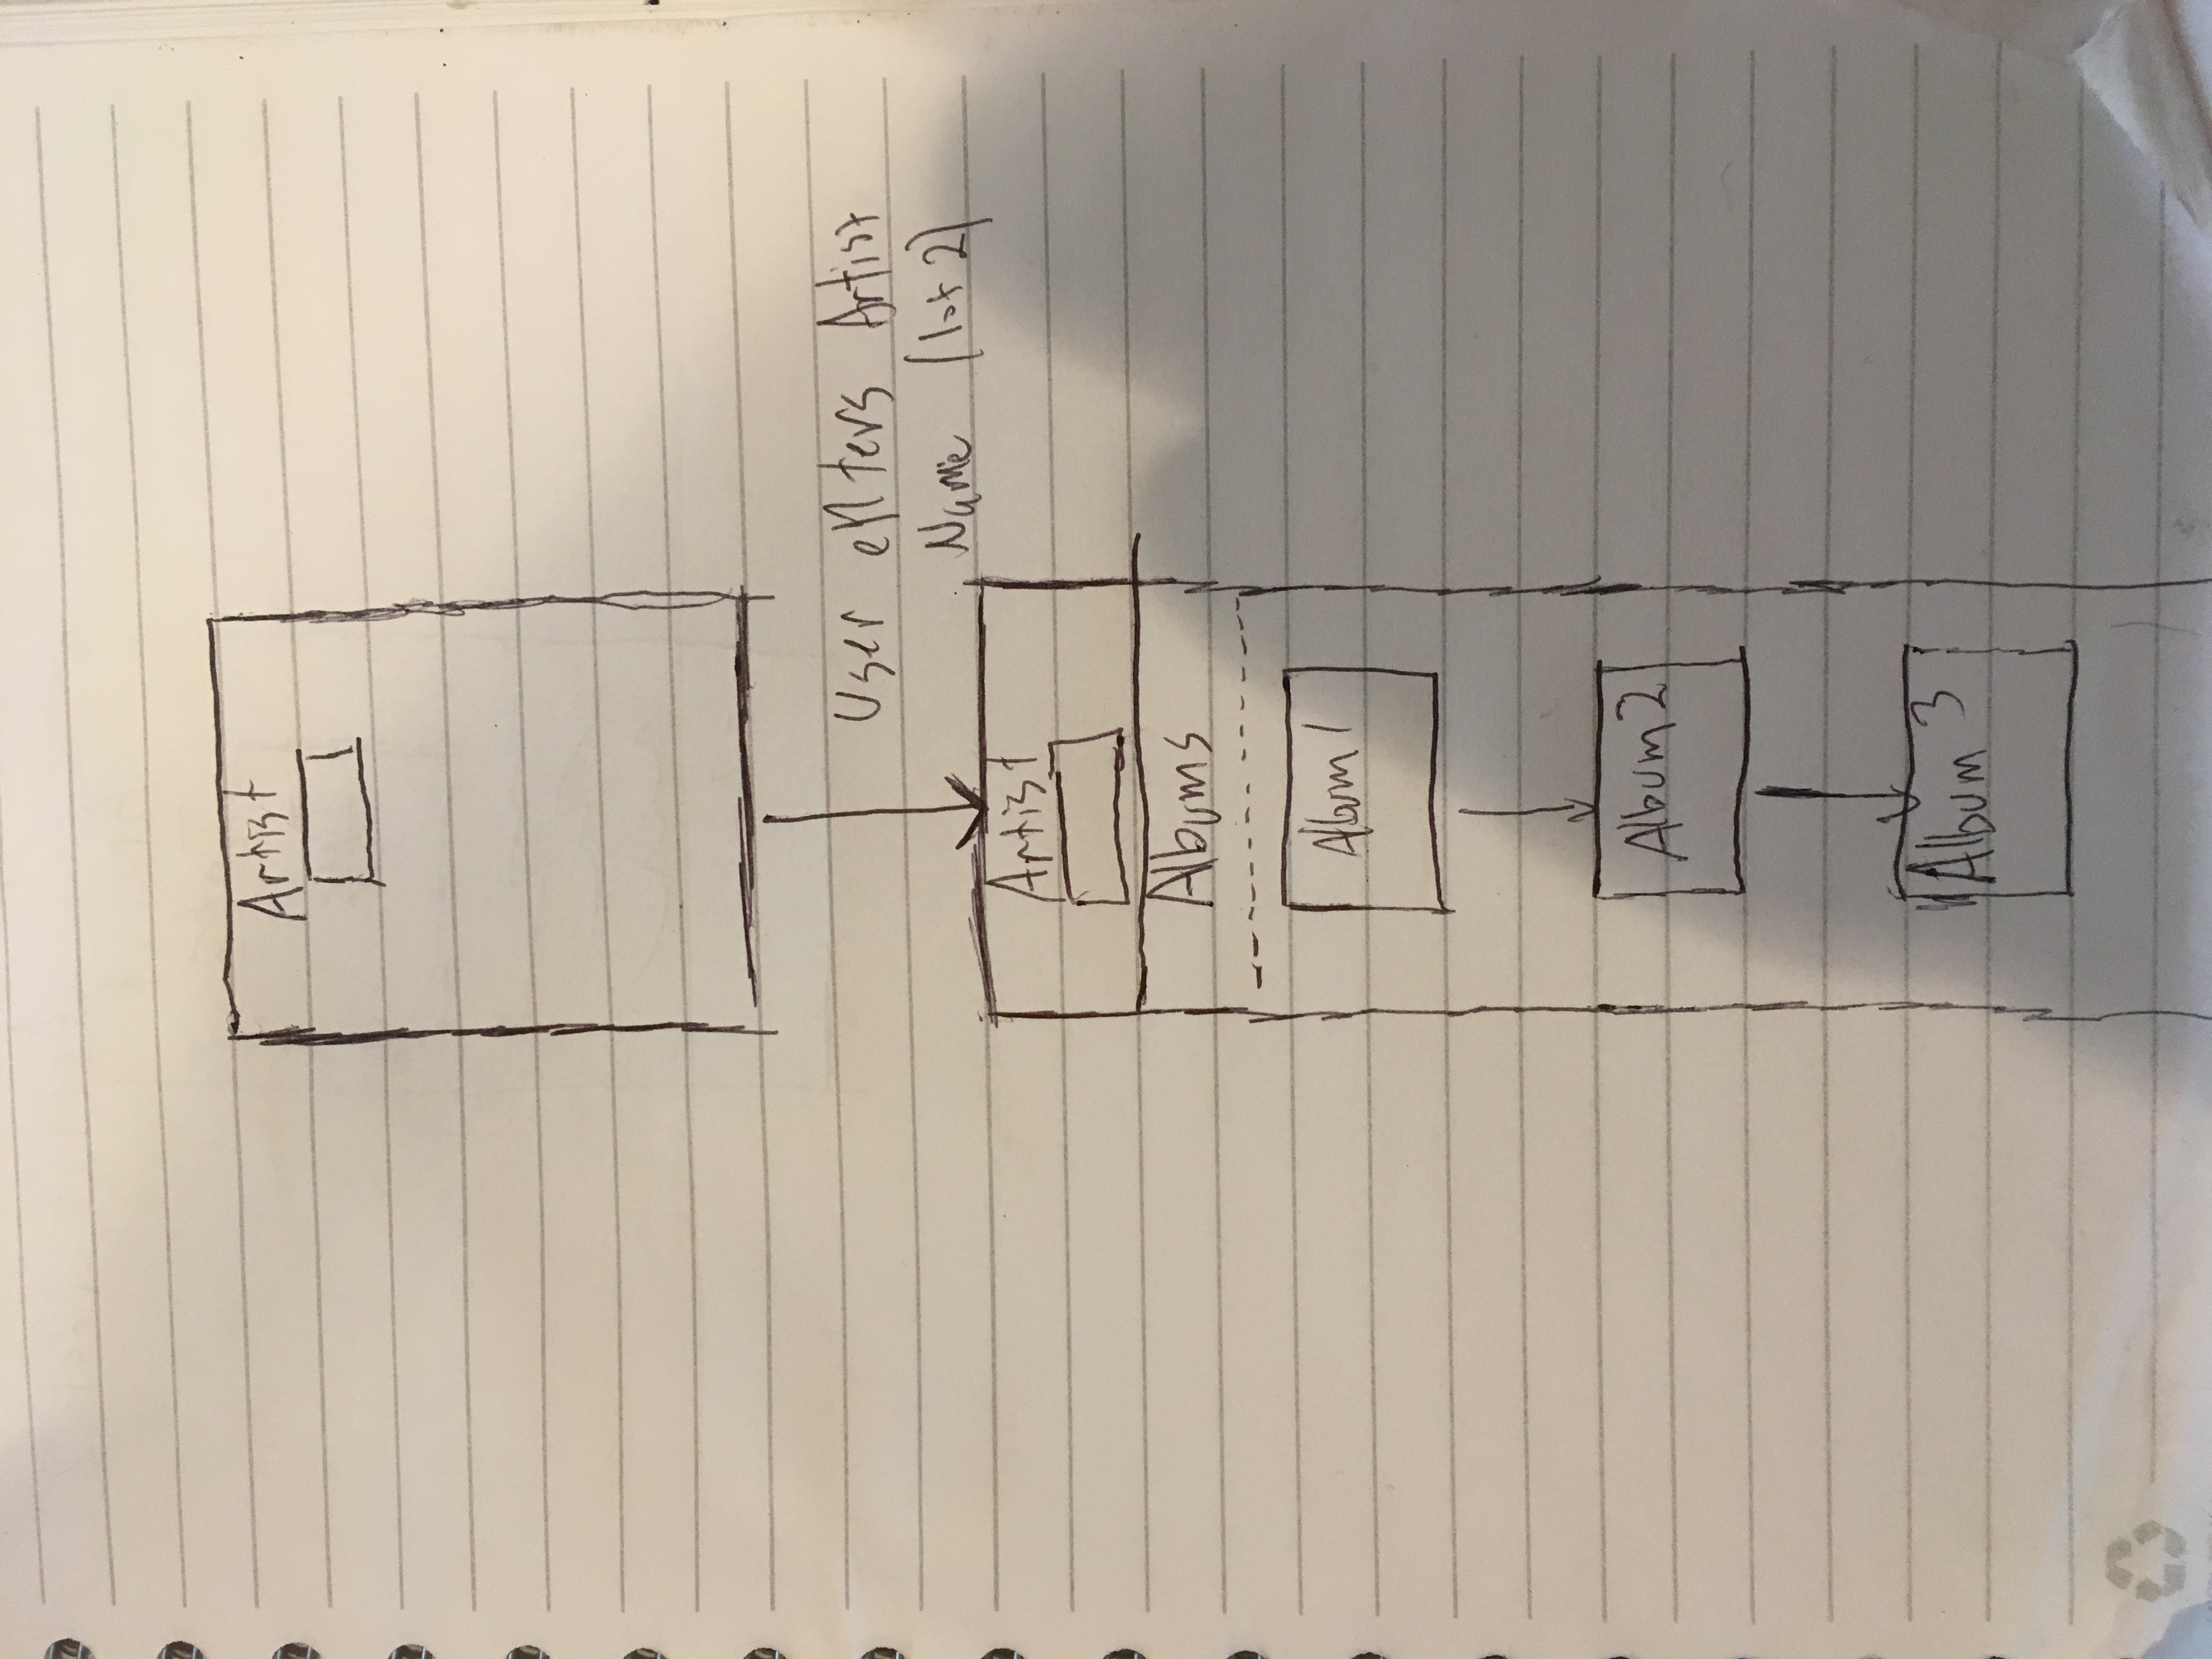 Artist
User enters Artist
Name (1 of 2)
Artist
Albums
Album 1
Album 2
Album 3